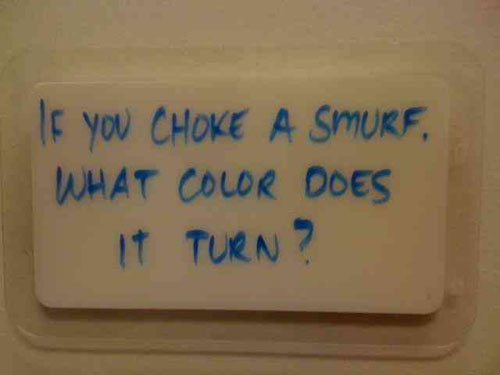 IF YOU CHOKE A SMURF.
WHAT COLOR DOES
IT TURN?